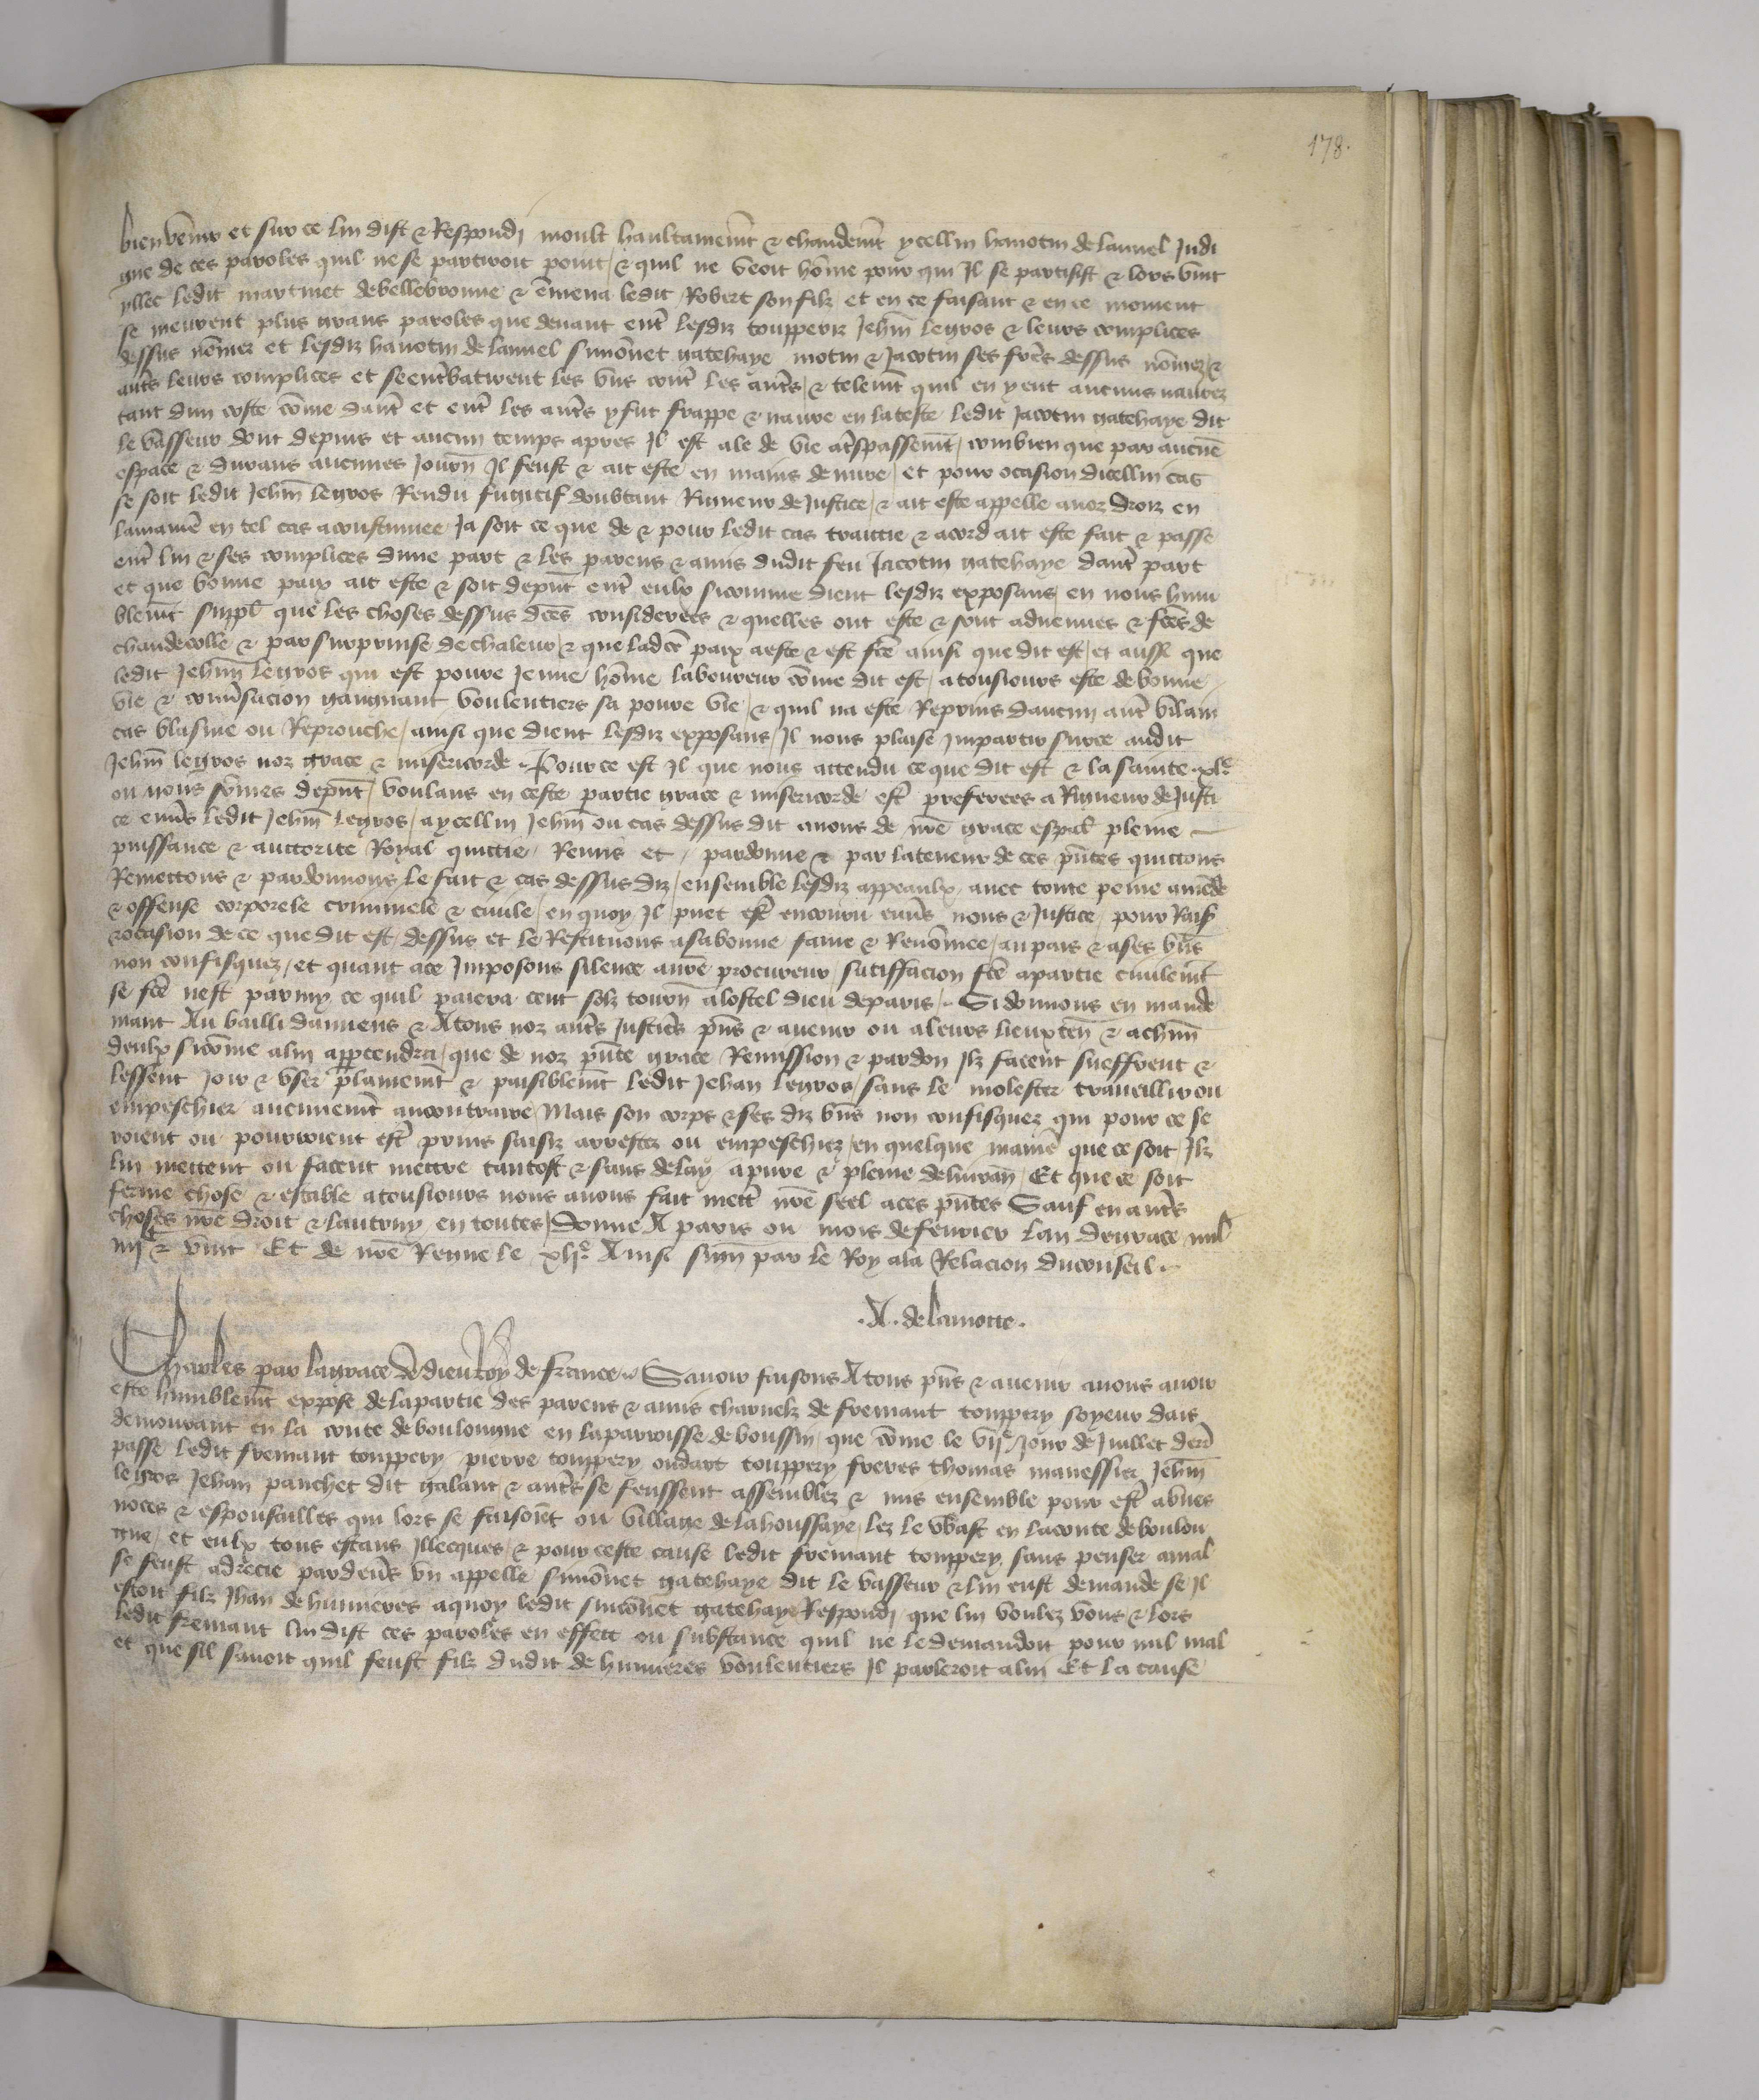 178.
bien venir et sur ce lui dist & Respondi moult haultamenīt & chaudemīt ycellui hanotin de launel Indi
gne de ces paroles quil ne se partiroit point / & quil ne veoit hōme pour qui Il se partisist & lors vint
yllec ledit martinet de bellebronne & ēmena ledit Robert son filz et en ce faisant & en ce moment
se meurent plus grans paroles que devant ent̄ lesdiz toupperiz Jehān legros & leurs complices
dessus nōmez et lesdiz hanotin de launel simōnet gatehaye motin & Jacotin ses fr̄es dessus nōmez &
aut̄s leurs complices et se ent̄batirent les uns cont̄ les aut̄s / & telemīt quil en y eut aucuns navrez
tant dun coste cōme daut̄ et ent̄ les aut̄s y fut frappe & navre en la teste ledit Jacotin gatehaye dit
le vasseur dont depuis et aucun temps apres Il est ale de vie a t̄spassemīt / combien que par aucūe
espace & durans aucunes Jourñ Il feust & ait este en mains de mire / et pour ocasion dicellui cas
se soit ledit Jehān legros Rendu fugitif doubtant Rigueur de Justice / & ait este appelle a noz droiz en
la maniē en tel cas acoustumee Ja soit ce que de & pour ledit cas traittie & acord ait este fait & passe
ent̄ lui & ses complices dune part & les parens & amis dudit feu Jacotin gatehaye daut̄ part
et que bonne paix ait este & soit dep̄nt ent̄ eulx sicomme dient lesdiz exposans / en nous hum
blemīt suppl̄ que les choses dessus dc̄es considerees & quelles ont este & sont advenues & fc̄es de
chaudecolle & par surprinse de chaleur / & que ladc̄e paix a este & est fc̄e ainsi que dit est / et aussi que
ledit Jehān legros qui est povre Jeune hōme laboureur cōme dit est / a tousiours este de bonne
vie & conv̄sacion gaignant voulentiers sa povre vie / & quil na este Reprins daucun aut̄ vilain
cas blasme ou Reprouche / ainsi que dient lesdiz exposans / Il nous plaise Impartir sur ce audit
Jehān legros noz grace & misericorde . Pource est Il que nous attendu ce que dit est & la sainte xlē
ou nous sōmes dep̄nt / voulans en ceste partie grace & misericorde est̄ preferees a Rigueur de Justi
ce env̄s ledit Jehān legros / a ycellui Jehān ou cas dessus dit avons de nr̄e grace espāl pleine
puissance & auctorite Royal quittie Remis et pardonne & par la teneur de ces p̄ntes quittons
Remettons & pardonnons le fait & cas dessus diz / ensemble lesdiz appeaulx avec toute peine amēde
& offense corporele criminele & civile / en quoy Il puet est̄ encouru env̄s nous & Justice / pour Rais̄
& ocasion de ce que dit est / dessus et le Restituons a sa bonne fame & Renōmee / au pais & a ses bn̄s
non confisquez / et quant a ce Imposons silence a nr̄e procureur / satiffacion fc̄e a partie civilemīt
se fc̄e nest parmy ce quil paiera cent solz tourñ a lostel dieu de paris . Si donnons en mande
mant Au bailli damiens & A tous noz aut̄s Justic̄s p̄ns & avenir ou a leurs lieuxteñ & a chūn
deulx sicōme a lui app̄tendra / que de noz p̄nte grace Remission & pardon Ilz facent sueffrent &
lessent Joir & user plainemīt & paisiblemīt ledit Jehan legros / sans le molester travaillir ou
empeschier aucunemīt au contraire Mais son corps & ses diz bn̄s non confisquez qui pour ce se
roient ou pourroient est̄ prins saisiz arrestez ou empeschiez / en quelque maniē que ce soit / Ilz
lui mettent ou facent mettre tantost & sans delay a pure & pleine delivrāñ / Et que ce soit
ferme chose & estable a tousiours nous avons fait mett̄ nr̄e seel a ces p̄ntes Sauf en aut̄s
choses nr̄e droit & lautruy en toutes / Donne A paris ou mois de fevrier lan de grace mil
iijc & vint Et de nr̄e Regne le xlijᵉ. Ainsi sign̄ par le Roy a la Relacion du conseil .
. N . de lamotte .
Charles par la grace de dieu Roy de france . Savoir faisons A tous p̄ns & avenir a nous avoir
este humblemīt expose de la partie des parens & amis charnelz de fremant touppery soyeur dais
demourant en la conte de boulongne en la parroisse de boussin / que cōme le vijᵉ Jour de Juillet derr̄
passe ledit fremant touppery pierre touppery oudart touppery freres thomas manessier Jehān
legros Jehan panchet dit galant & aut̄s se feussent assemblez & mis ensemble pour est̄ a unes
noces & espousailles qui lors se faisoīēt ou village de la houssaye / lez le wast en la conte de boulon
gne / et eulx tous estans Illecques / & pour ceste cause ledit fremant touppery sans penser a mal
se feust adrecie par dev̄s un appelle simōnet gatehaye dit le vasseur & lui eust demande se Il
estoit filz Jhan de humieres a quoy ledit simonet gatehaye Respondi / que lui voulez vous & lors
ledit fremant lui dist ces paroles en effett ou substance quil ne le demandoit pour nul mal
et que sil savoit quil feust filz dudit de humieres voulentiers Il parleroit a lui Et la cause